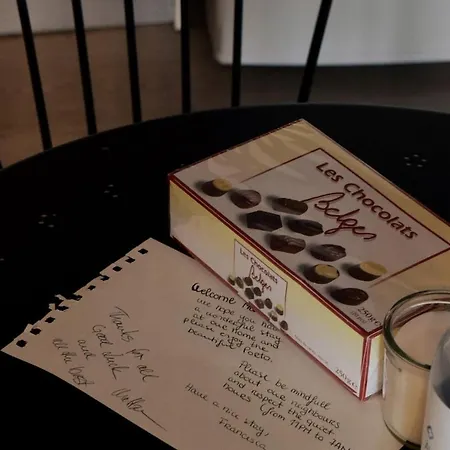 Les Chocolats
Belges
250g e
Les Chocolats
Belges
Welcome
we hope you have
a wonderful stay
at our home and
Please enjoy the
beautiful Porto.
Please be mindfull
about our neighbours
and respect the quiet
hours (from 11PM to 7AM
Have a nice stay,
Francisca
Thanks for all
Good luck
and
all the best